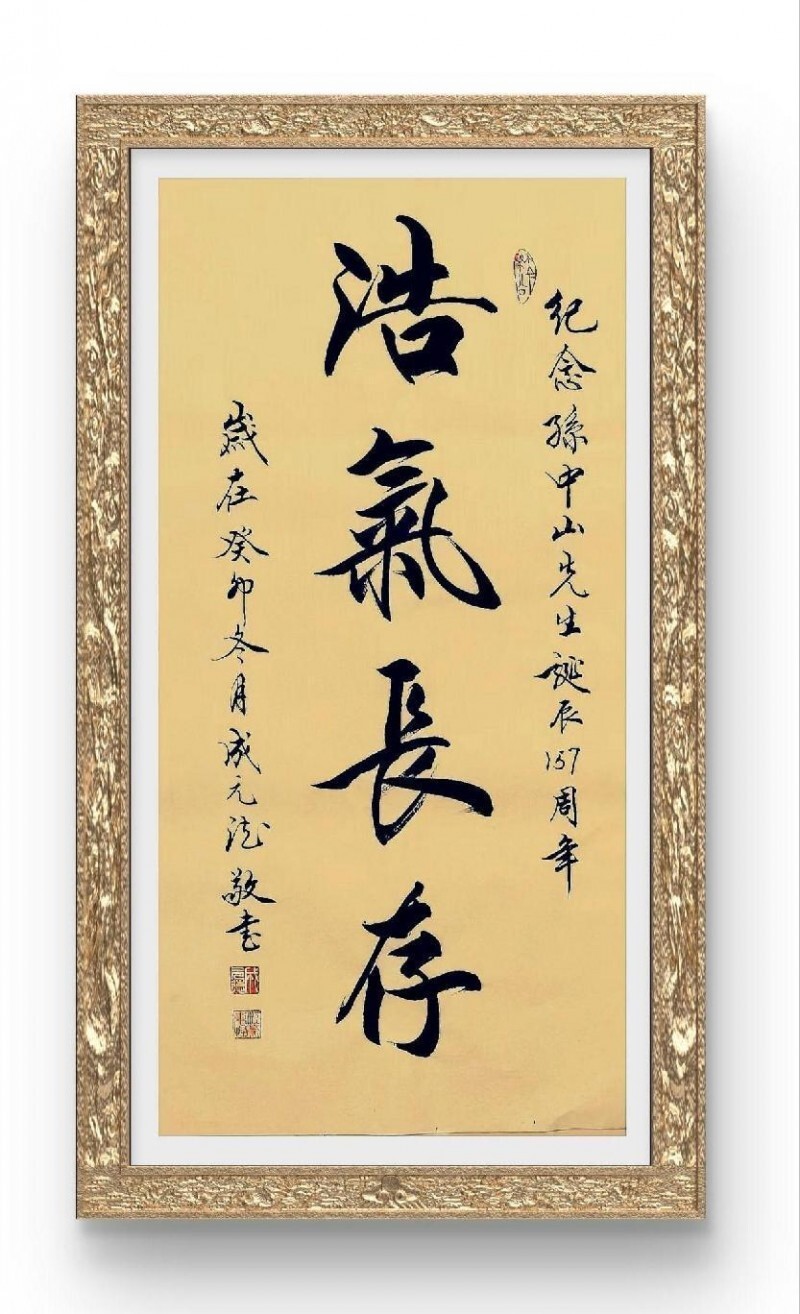 紀念孫中山先生誕辰157周年
浩氣長存
歲在癸卯冬月成元法敬书